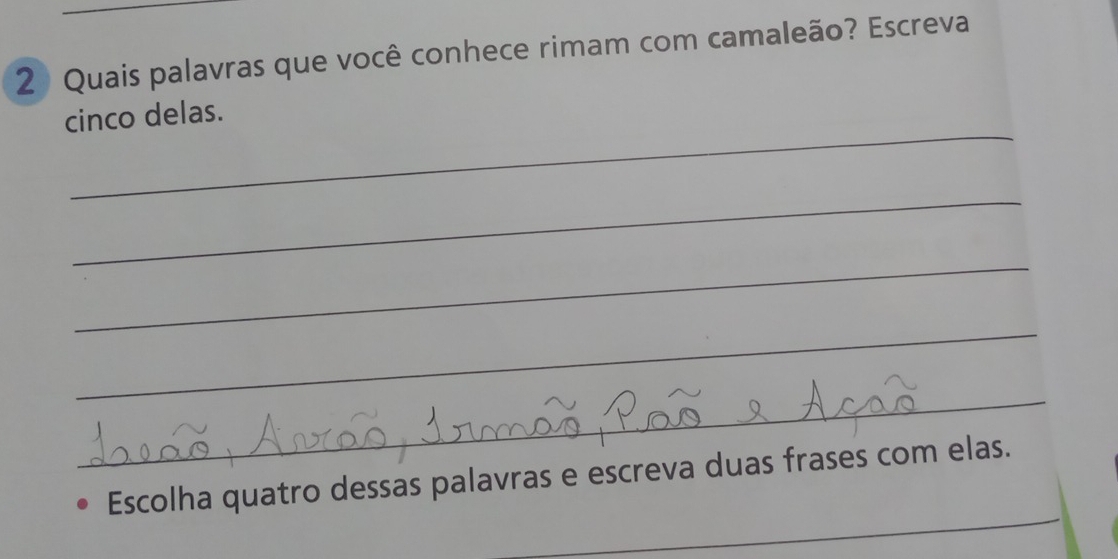 2 Quais palavras que você conhece rimam com camaleão? Escreva
cinco delas.
Irmão, Pão e Ação
• Escolha quatro dessas palavras e escreva duas frases com elas.